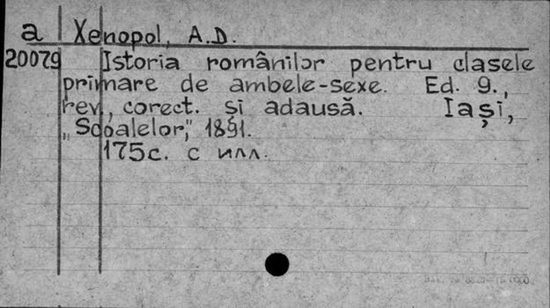 a Xenopol, A.D.
20079 Istoria românilor pentru clasele
primare de ambele-sexe. Ed. 9.,
rev., corect. și adausă. Iași,
„Scoalelor", 1891.
175c. с илл.